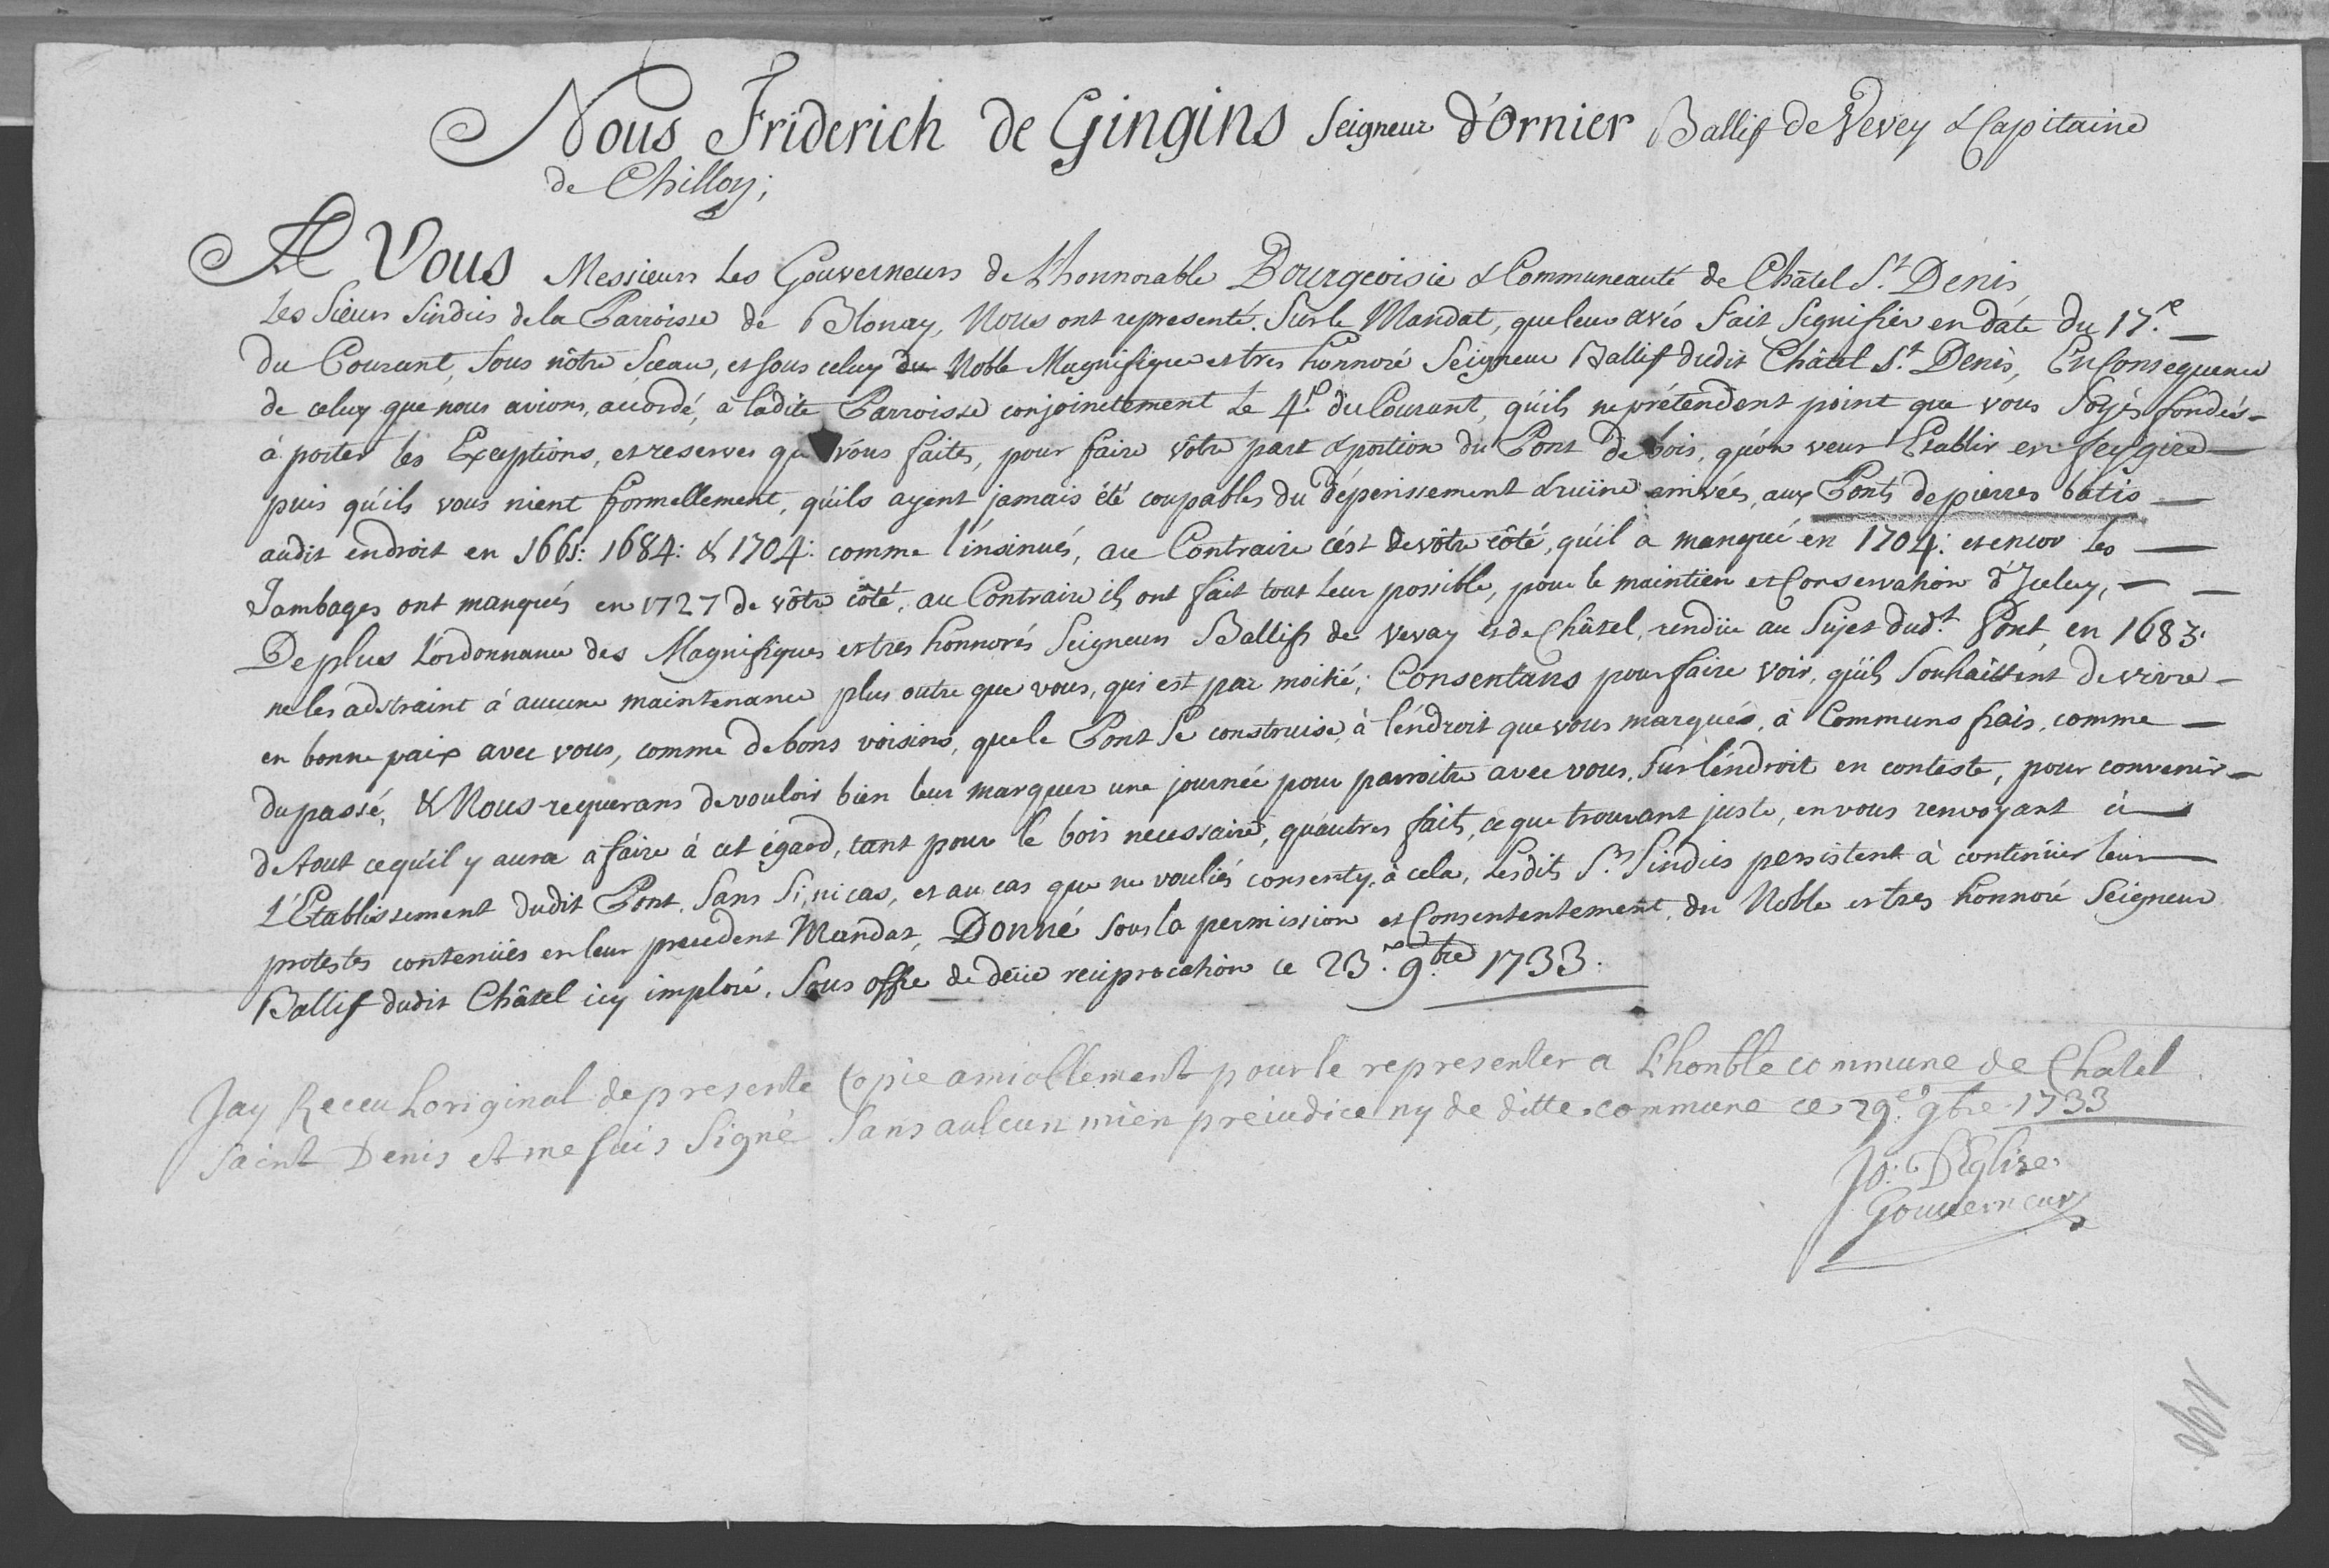 Nous Friderich de Gingins Seigneur d'Ornier Ballif de Vevey & Capitaine
de Chillon;
A Vous Messieurs Les Gouverneurs de L'honnorable Bourgeoisie & Communeauté de Châtel S.t Denis
Les Sieurs Sindics de la Parroisse de Blonay, Nous ont representé. Sur le Mandat, que leur avés fait Signifier en date du 17.e
du Courant, Sous nôtre Sceau, et sous celuy du Noble Magnifique et tres honnoré Seigneur Ballif dudit Châtel S.t Denis, En Consequence
de celuy que nous avions, accordé, à ladite Parroisse conjoinctement Le 4.e du Courant, qu'ils ne prétendent point que vous Soyés fondés
à porter les Exceptions, et reserves que vous faites, pour faire vôtre part & portion du Pont de bois, qu'on veut Etablir en feygire
puis qu'ils vous nient formellement, qu'ils ayent jamais été coupables du dépérissement & ruïne arrivées, aux Ponts de pierres bâtis
audit endroit en 1661: 1684: & 1704: comme l'insinués, au Contraire c'est de vôtre côté, qu'il a manqué en 1704: et encor les
Jambages ont manqués en 1727 de vôtre côté, au Contraire ils ont fait tout leur possible, pour le maintien et Conservation d'Iceluy,
De plus L'ordonnance des Magnifiques et tres honnorés Seigneurs Ballifs de Vevay et de Châtel, rendüe au Sujet dud.t Pont, en 1683.
ne les adstraint à aucune maintenance plus outre que vous, qui est par moitié; Consentans pour faire voir, qu'ils Souhaittent de vivre
en bonne paix avec vous, comme de bons voisins, que le Pont Se construise, à l'endroit que vous marqués, à Communs frais, comme
du passé, & Nous requerans de vouloir bien leur marquer une journée pour parroitre avec vous, Sur l'endroit en conteste, pour convenir
de tout ce qu'il y aura à faire à cet égard, tant pour le bois necessaire, qu'autres faits, ce que trouvant juste, en vous renvoyant à
L'Etablissement dudit Pont, Sans Si, ni cas, et au cas que ne vouliés consenty, à cela, Lesdits S.rs Sindics persistent à continüer leur
protestes contenües en leur precedent Mandat, Donné Sous la permission et Consententement, du Noble et tres honnoré Seigneur
Ballif dudit Châtel icy imploré, Sous offre de deüe reciprocation ce 23.e 9.bre 1733.
Jay Receu Loriginal de presente Copie amiablement pour le representer a Lhonble commune de Chatel
Saint Denis et me suis Signé Sans aulcun mien preiudice ny de ditte commune ce 29.e 9bre 1733
DEglise
Gouverneur